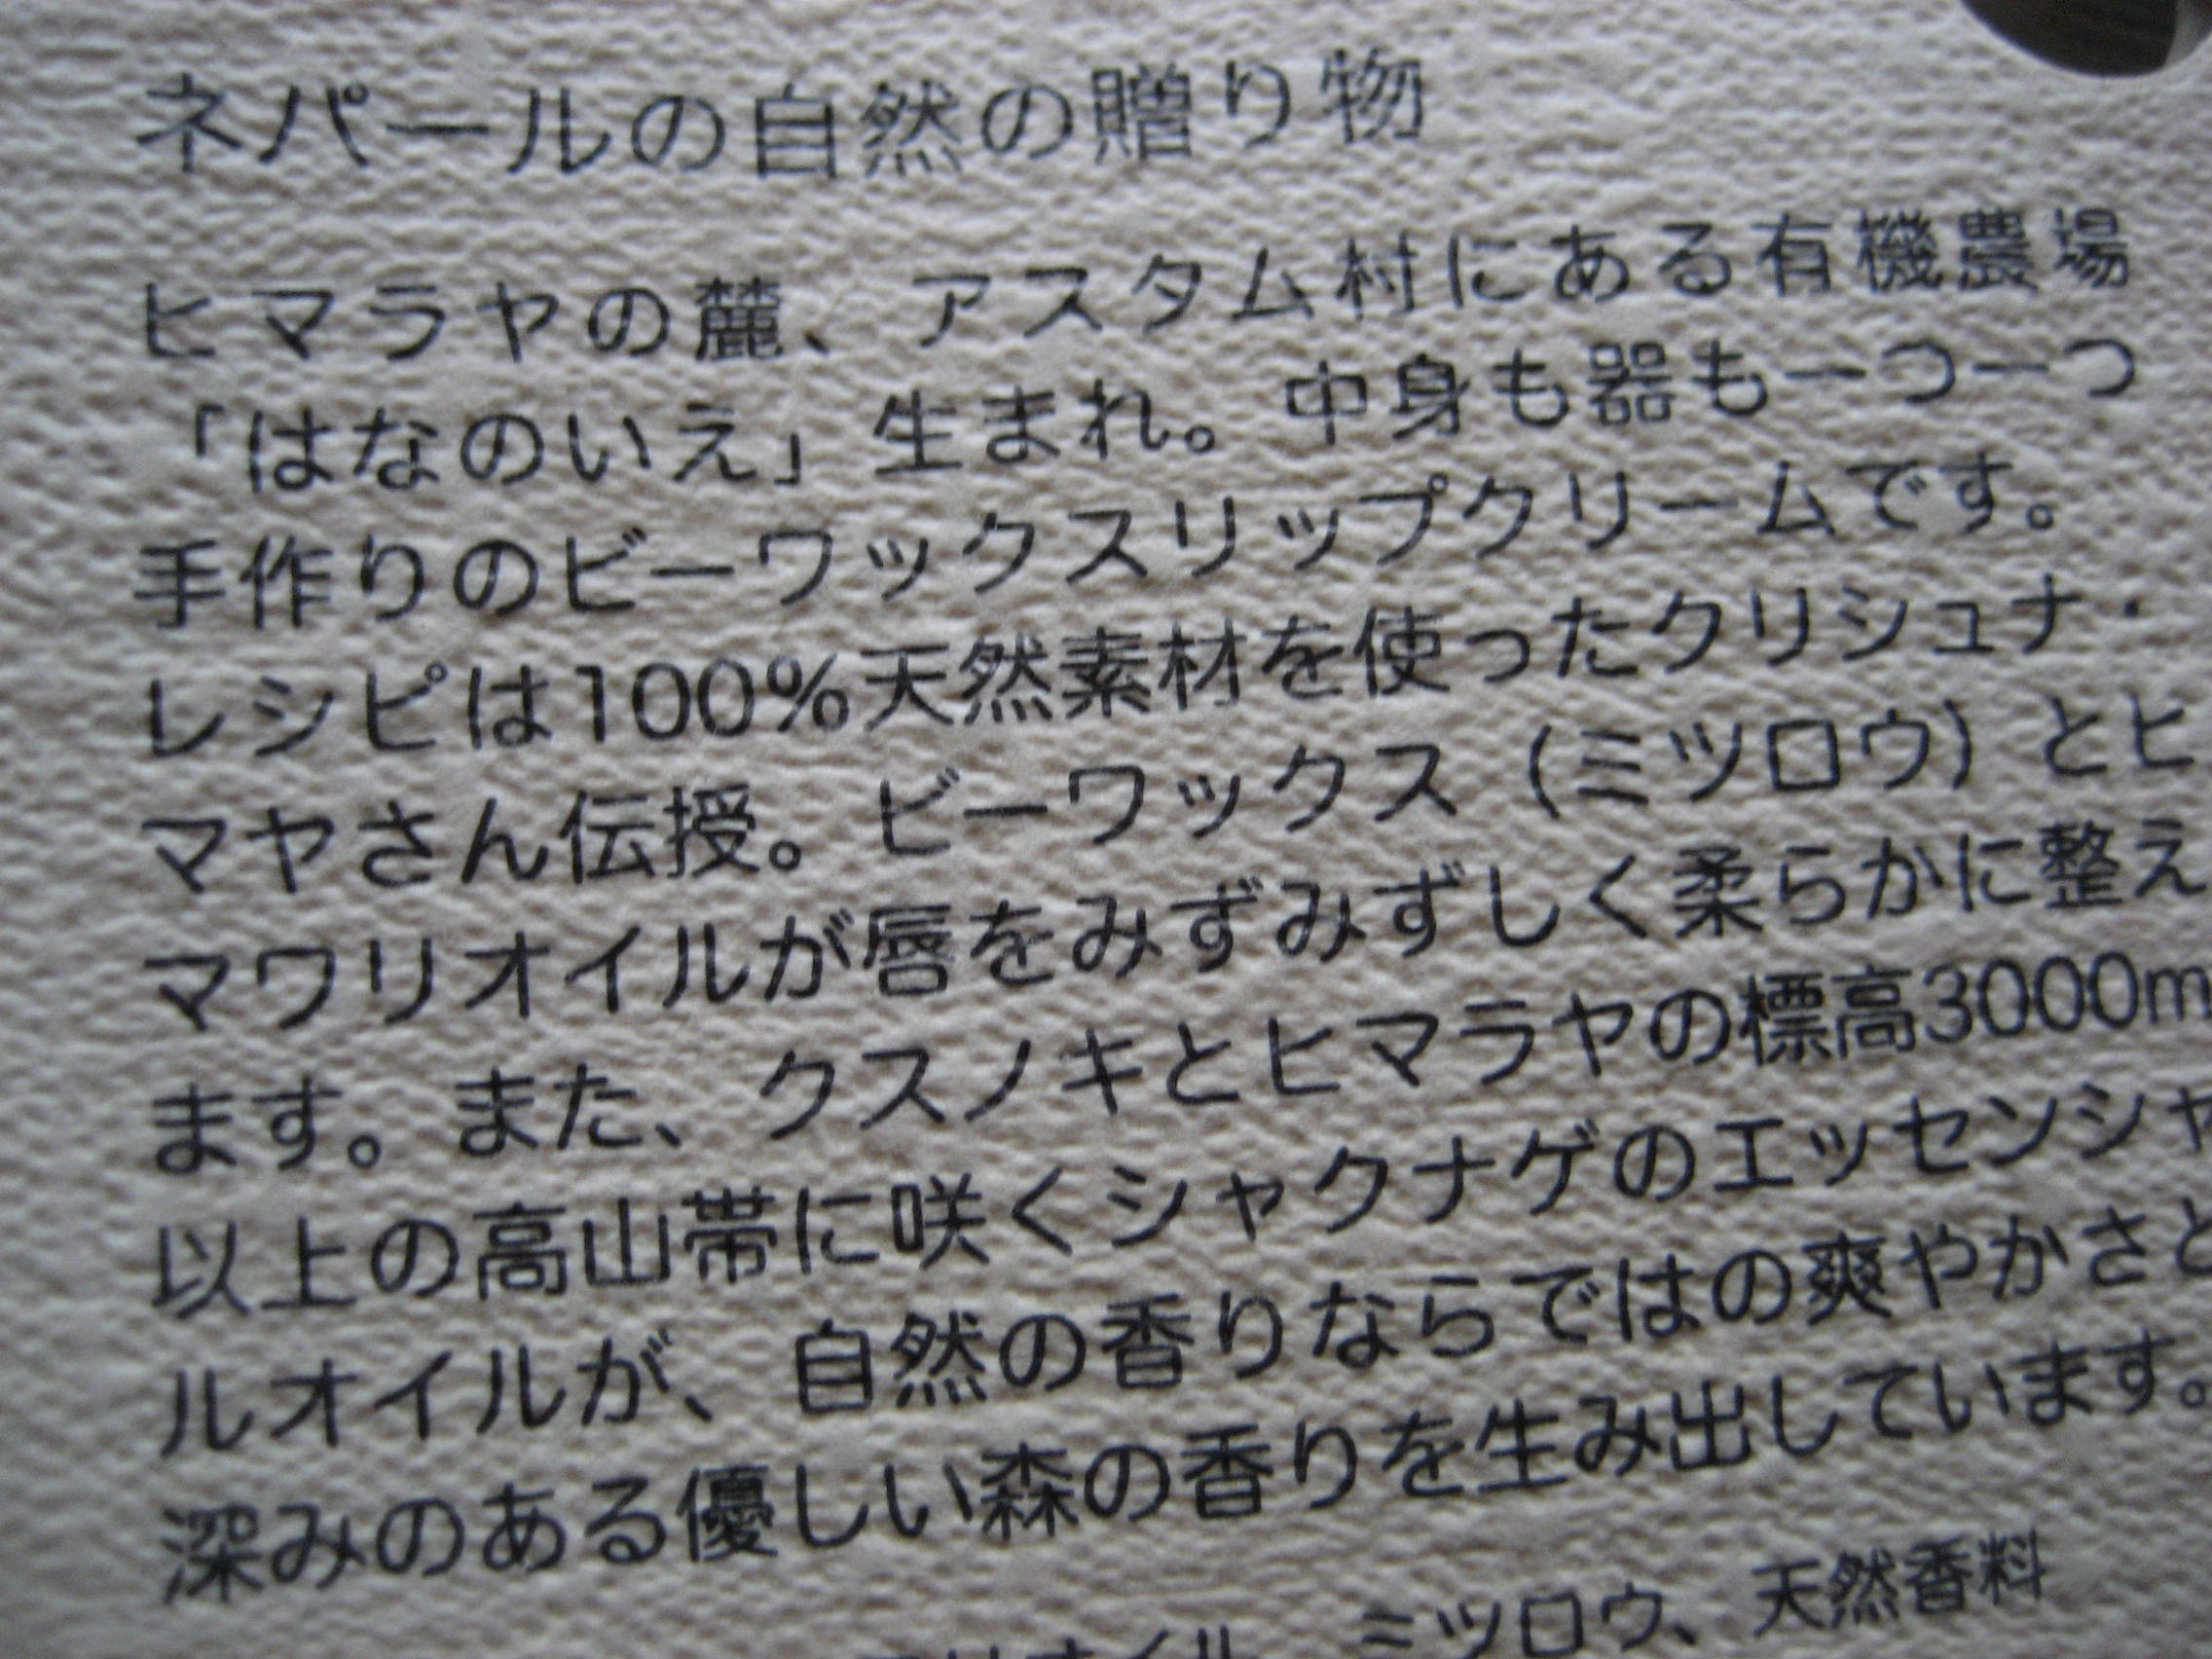 ネパールの自然の贈り物
ヒマラヤの麓、アスタム村にある有機農場
「はなのいえ」生まれ。中身も器も一つ一つ
手作りのビーワックスリップクリームです。
レシピは100%天然素材を使ったクリシュナ・
マヤさん伝授。ビーワックス（ミツロウ）とヒ
マワリオイルが唇をみずみずしく柔らかに整え
ます。また、クスノキとヒマラヤの標高3000m
以上の高山帯に咲くシャクナゲのエッセンシャ
ルオイルが、自然の香りならではの爽やかさと
深みのある優しい森の香りを生み出しています。
リオイル、ミツロウ、天然香料